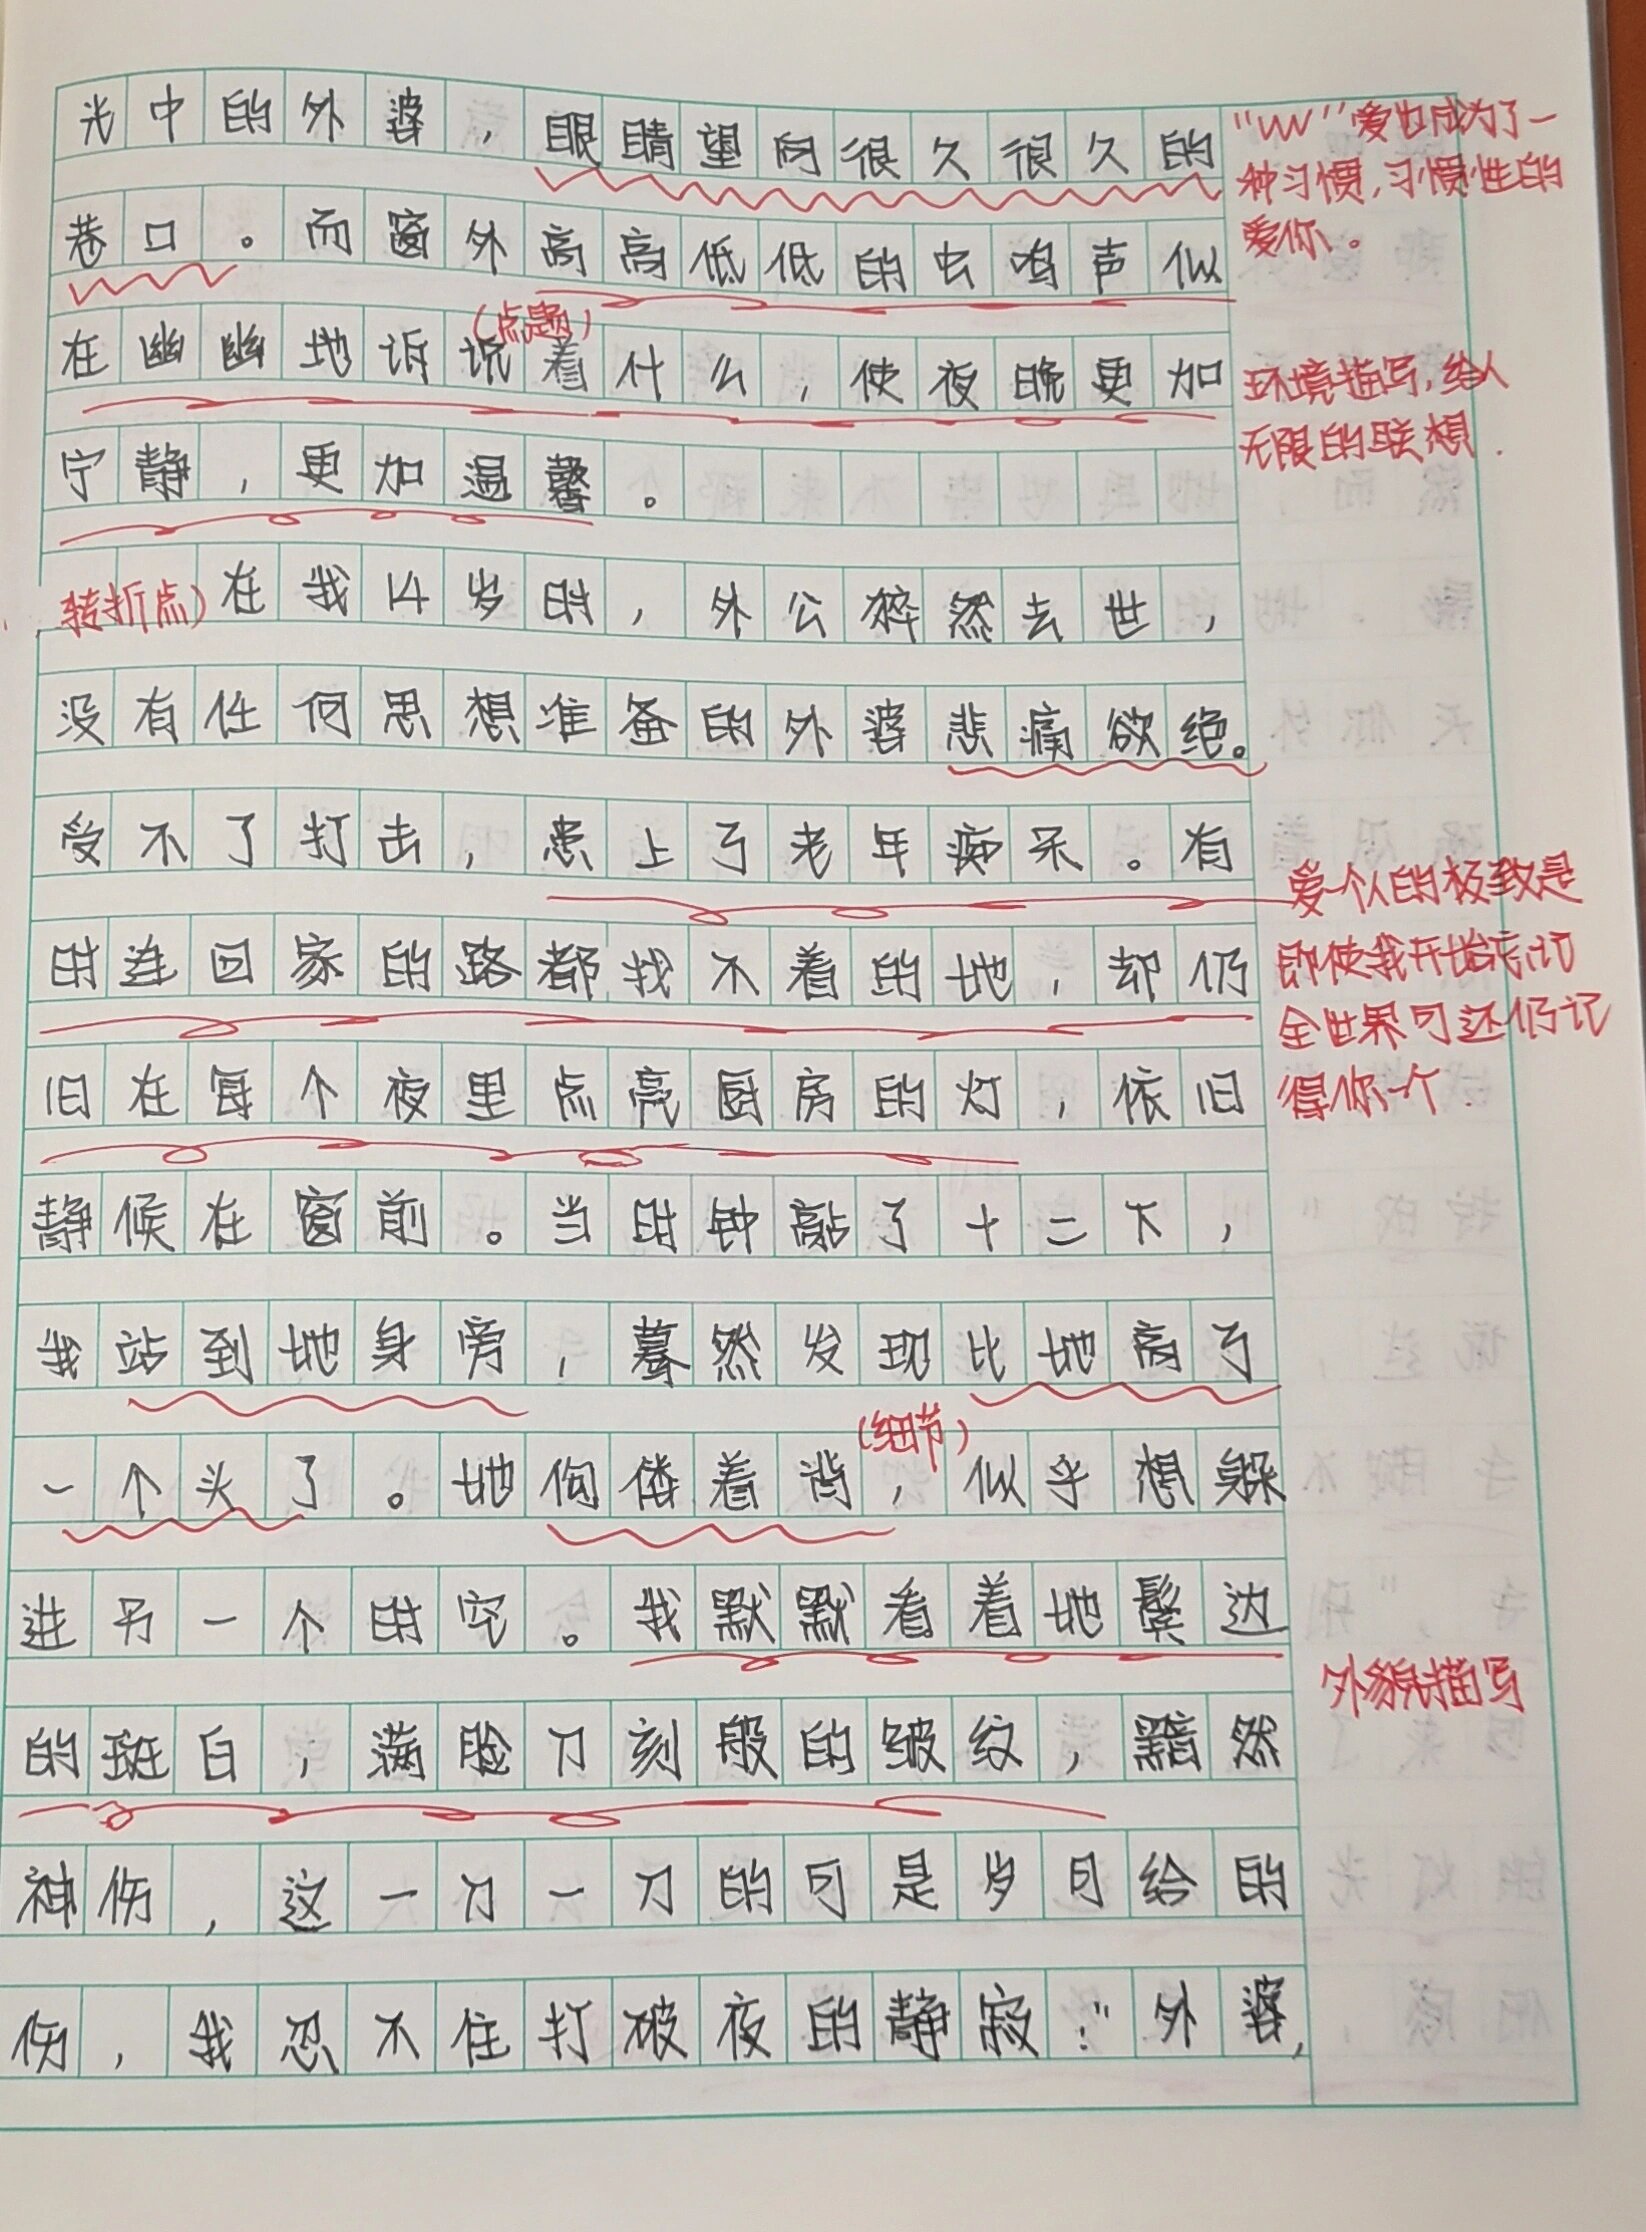 光中的外婆，眼睛望向很久很久的
"VVV"爱也成为了一
种习惯，习惯性的
爱你。
巷口。而窗外高高低低的虫鸣声似
（点题）
在幽幽地诉说着什么，使夜晚更加
环境描写，给人
无限的联想．
宁静，更加温馨。
转折点）
在我14岁时，外公猝然去世，
没有任何思想准备的外婆悲痛欲绝。
受不了打击，患上了老年痴呆。有
爱一个人的极致是
即使我开始忘记
全世界可还仍记
得你一个
时连回家的路都找不着的她，却仍
旧在每个夜里点亮厨房的灯，依旧
静候在窗前。当时钟敲了十二下，
我站到她身旁，蓦然发现比她高了
（细节）
一个头了。她佝偻着背，似乎想躲
进另一个时空。我默默看着她鬓边
外貌描写
的斑白，满脸刀刻般的皱纹，黯然
神伤，这一刀一刀的可是岁月给的
伤，我忍不住打破夜的静寂："外婆，